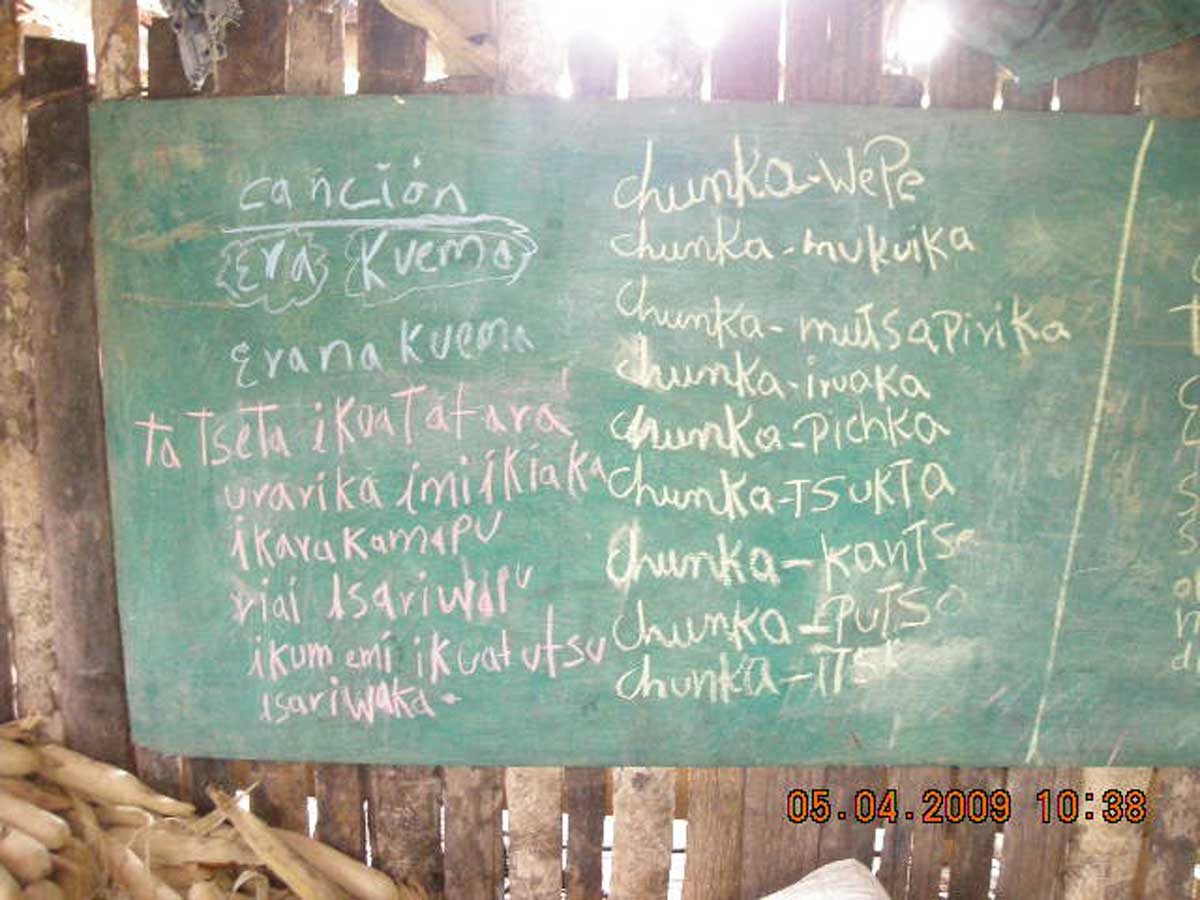 canción
Era Kuema
Erana Kuema
ta tseta ikuatatara
urarika imiikiaka
ikarakamapu
riai isariwapu
ikum emi ikuatutsu
isariwaka.
chunka-wepe
chunka-mukuika
chunka-mutsapirika
chunka-iruaka
chunka-pichka
chunka-tsukta
chunka-kantse
chunka-putsa
chunka-itsk
05.04.2009 10:38